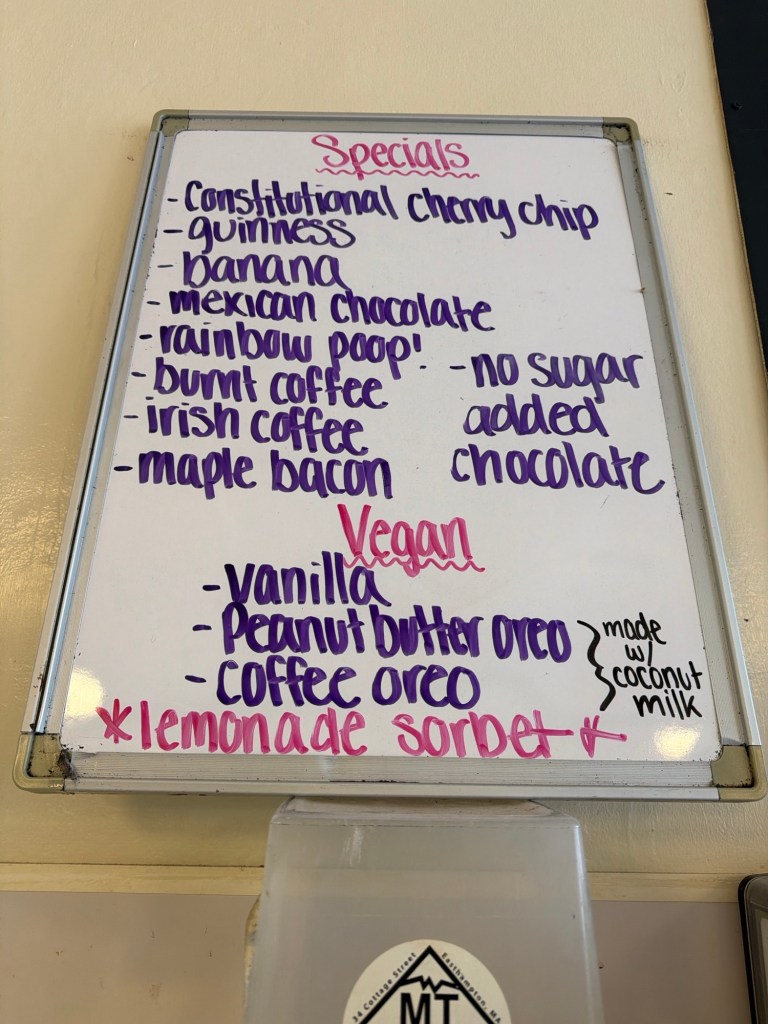 Specials
- Constitutional cherry chip
- guinness
- banana
- mexican chocolate
- rainbow poop!
- burnt coffee
- irish coffee
- maple bacon
- no sugar
added
chocolate
Vegan
- vanilla
- Peanut butter oreo
- coffee oreo
made
w/
coconut
milk
*lemonade sorbet*
34 Cottage Street
Easthampton, MA
MT